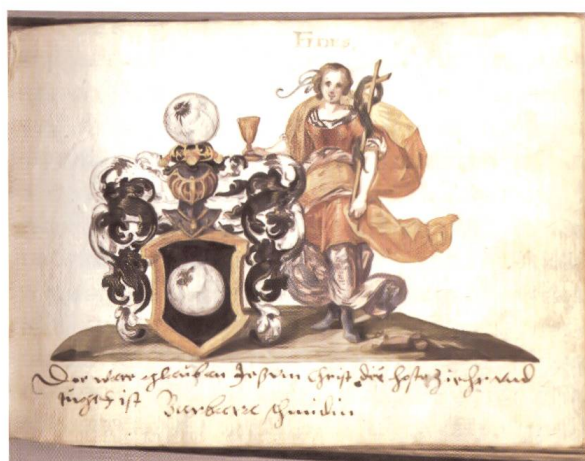 Fides
Der ware glauben Jesum Christ die höste Zier und
tugend ist Barbara Schmidin